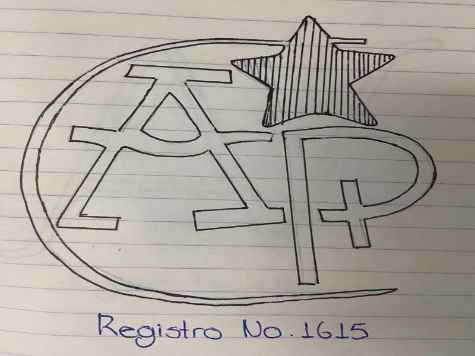 AP
Registro No. 1615